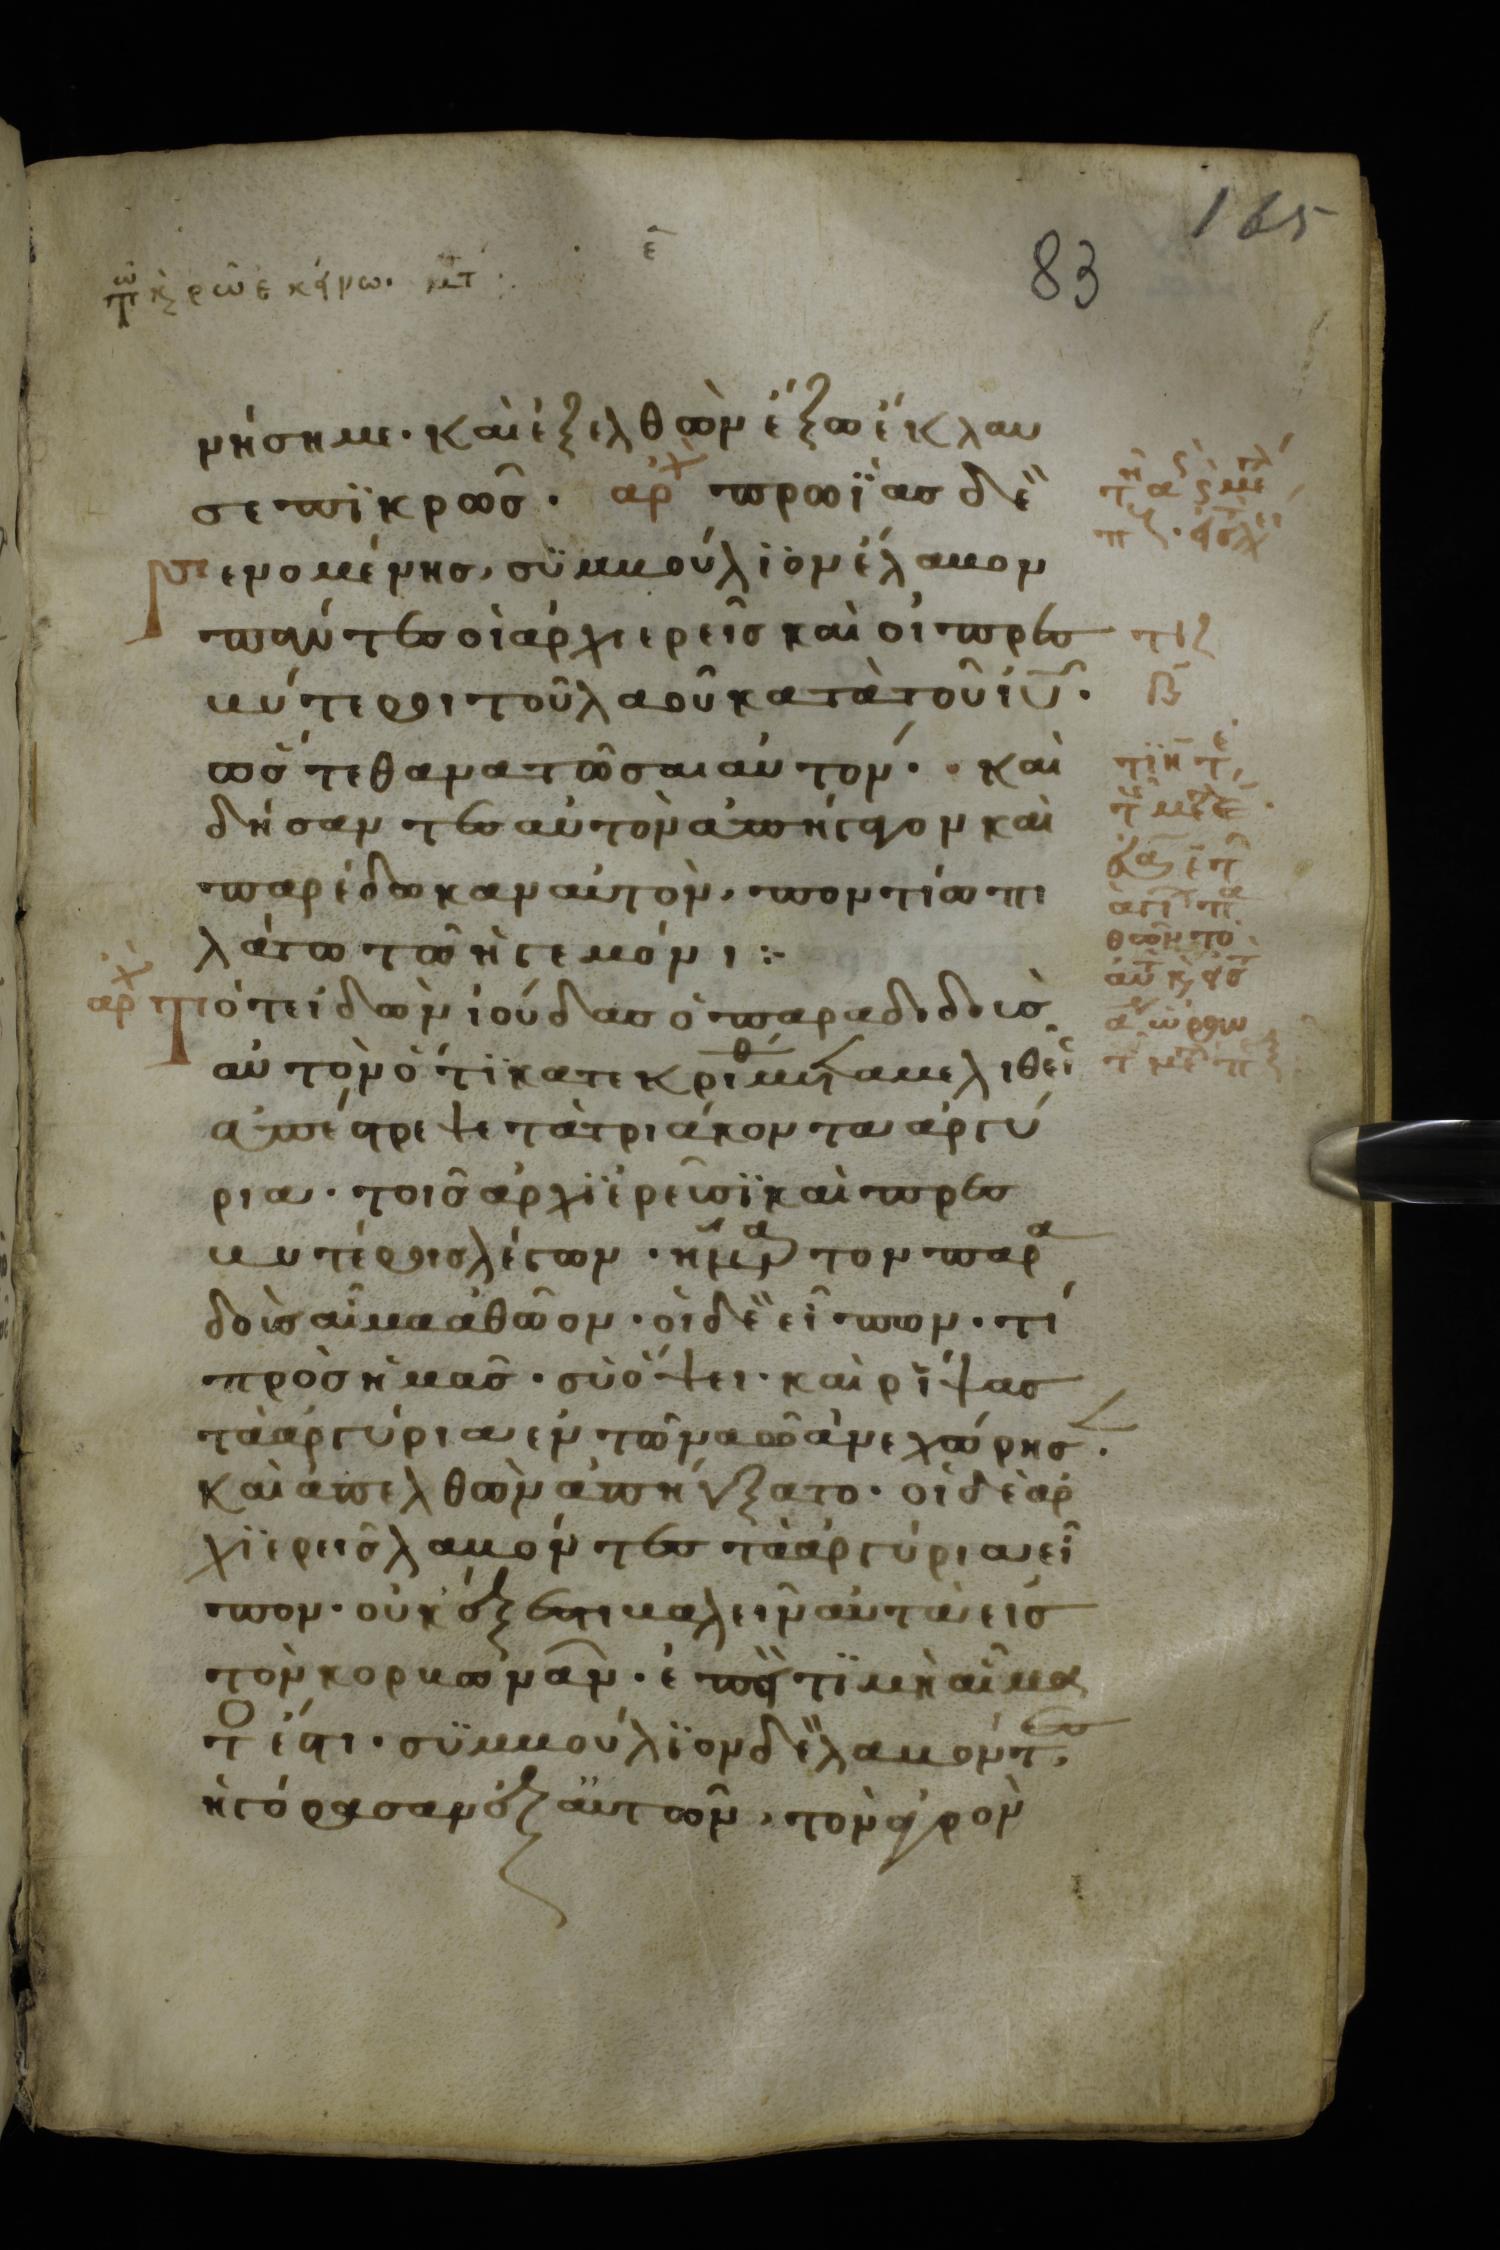 165
83
ε̄
νήση με· καὶ ἐξελθὼν ἔξω ἔκλαυ
σε πϊκρῶσ· ἀρχ πρωΐασ δὲ
γενομένησ, συμβούλϊον ἔλαβον
πάντεσ οἱ ἀρχιερεῖσ καὶ οἱ πρεσ
βύτεροι τοῦ λαοῦ κατὰ τοῦ ἰῦ·
ὥστε θανατῶσαι αὐτόν· καὶ
δήσαντεσ αὐτὸν ἀπήγαγον καὶ
παρέδωκαν αὐτὸν, ποντίω πι
λάτω τῶ ἡγεμόνι :-
ἀρχ Τότε ἰδὼν ἰούδασ ὁ παραδιδοὺσ
αὐτὸν ὅτϊ κατεκρίθη μεταμεληθεὶς
ἀπέστρεψε τὰ τριάκοντα ἀργύ
ρια· τοῖσ ἀρχϊερεῦσϊ καὶ πρεσ
βυτέροισ λέγων· ἥμαρτον παρα
δοὺσ αἷμα ἀθῶον· οἱ δὲ εἶπον· τί
πρὸσ ἡμᾶσ· σὺ ὄψει· καὶ ρίψασ
τὰ ἀργύρια ἐν τῶ ναῶ ἀνεχώρησ·
καὶ ἀπελθὼν ἀπήγξατο· οἱ δὲ ἀρ
χϊερεῖσ λαβόντεσ τὰ ἀργύρια εἶ
πον· οὐκ ἔξεστι βαλεῖν αὐτὰ εἰσ
τὸν κορβωνᾶν· ἐπεὶ τϊμὴ αἵμα
τό ἐστι· συμβούλϊον δὲ λαβόντεσ,
ἠγόρασαν ἐξ αὐτῶν, τὸν ἀγρὸν
τιζ
β